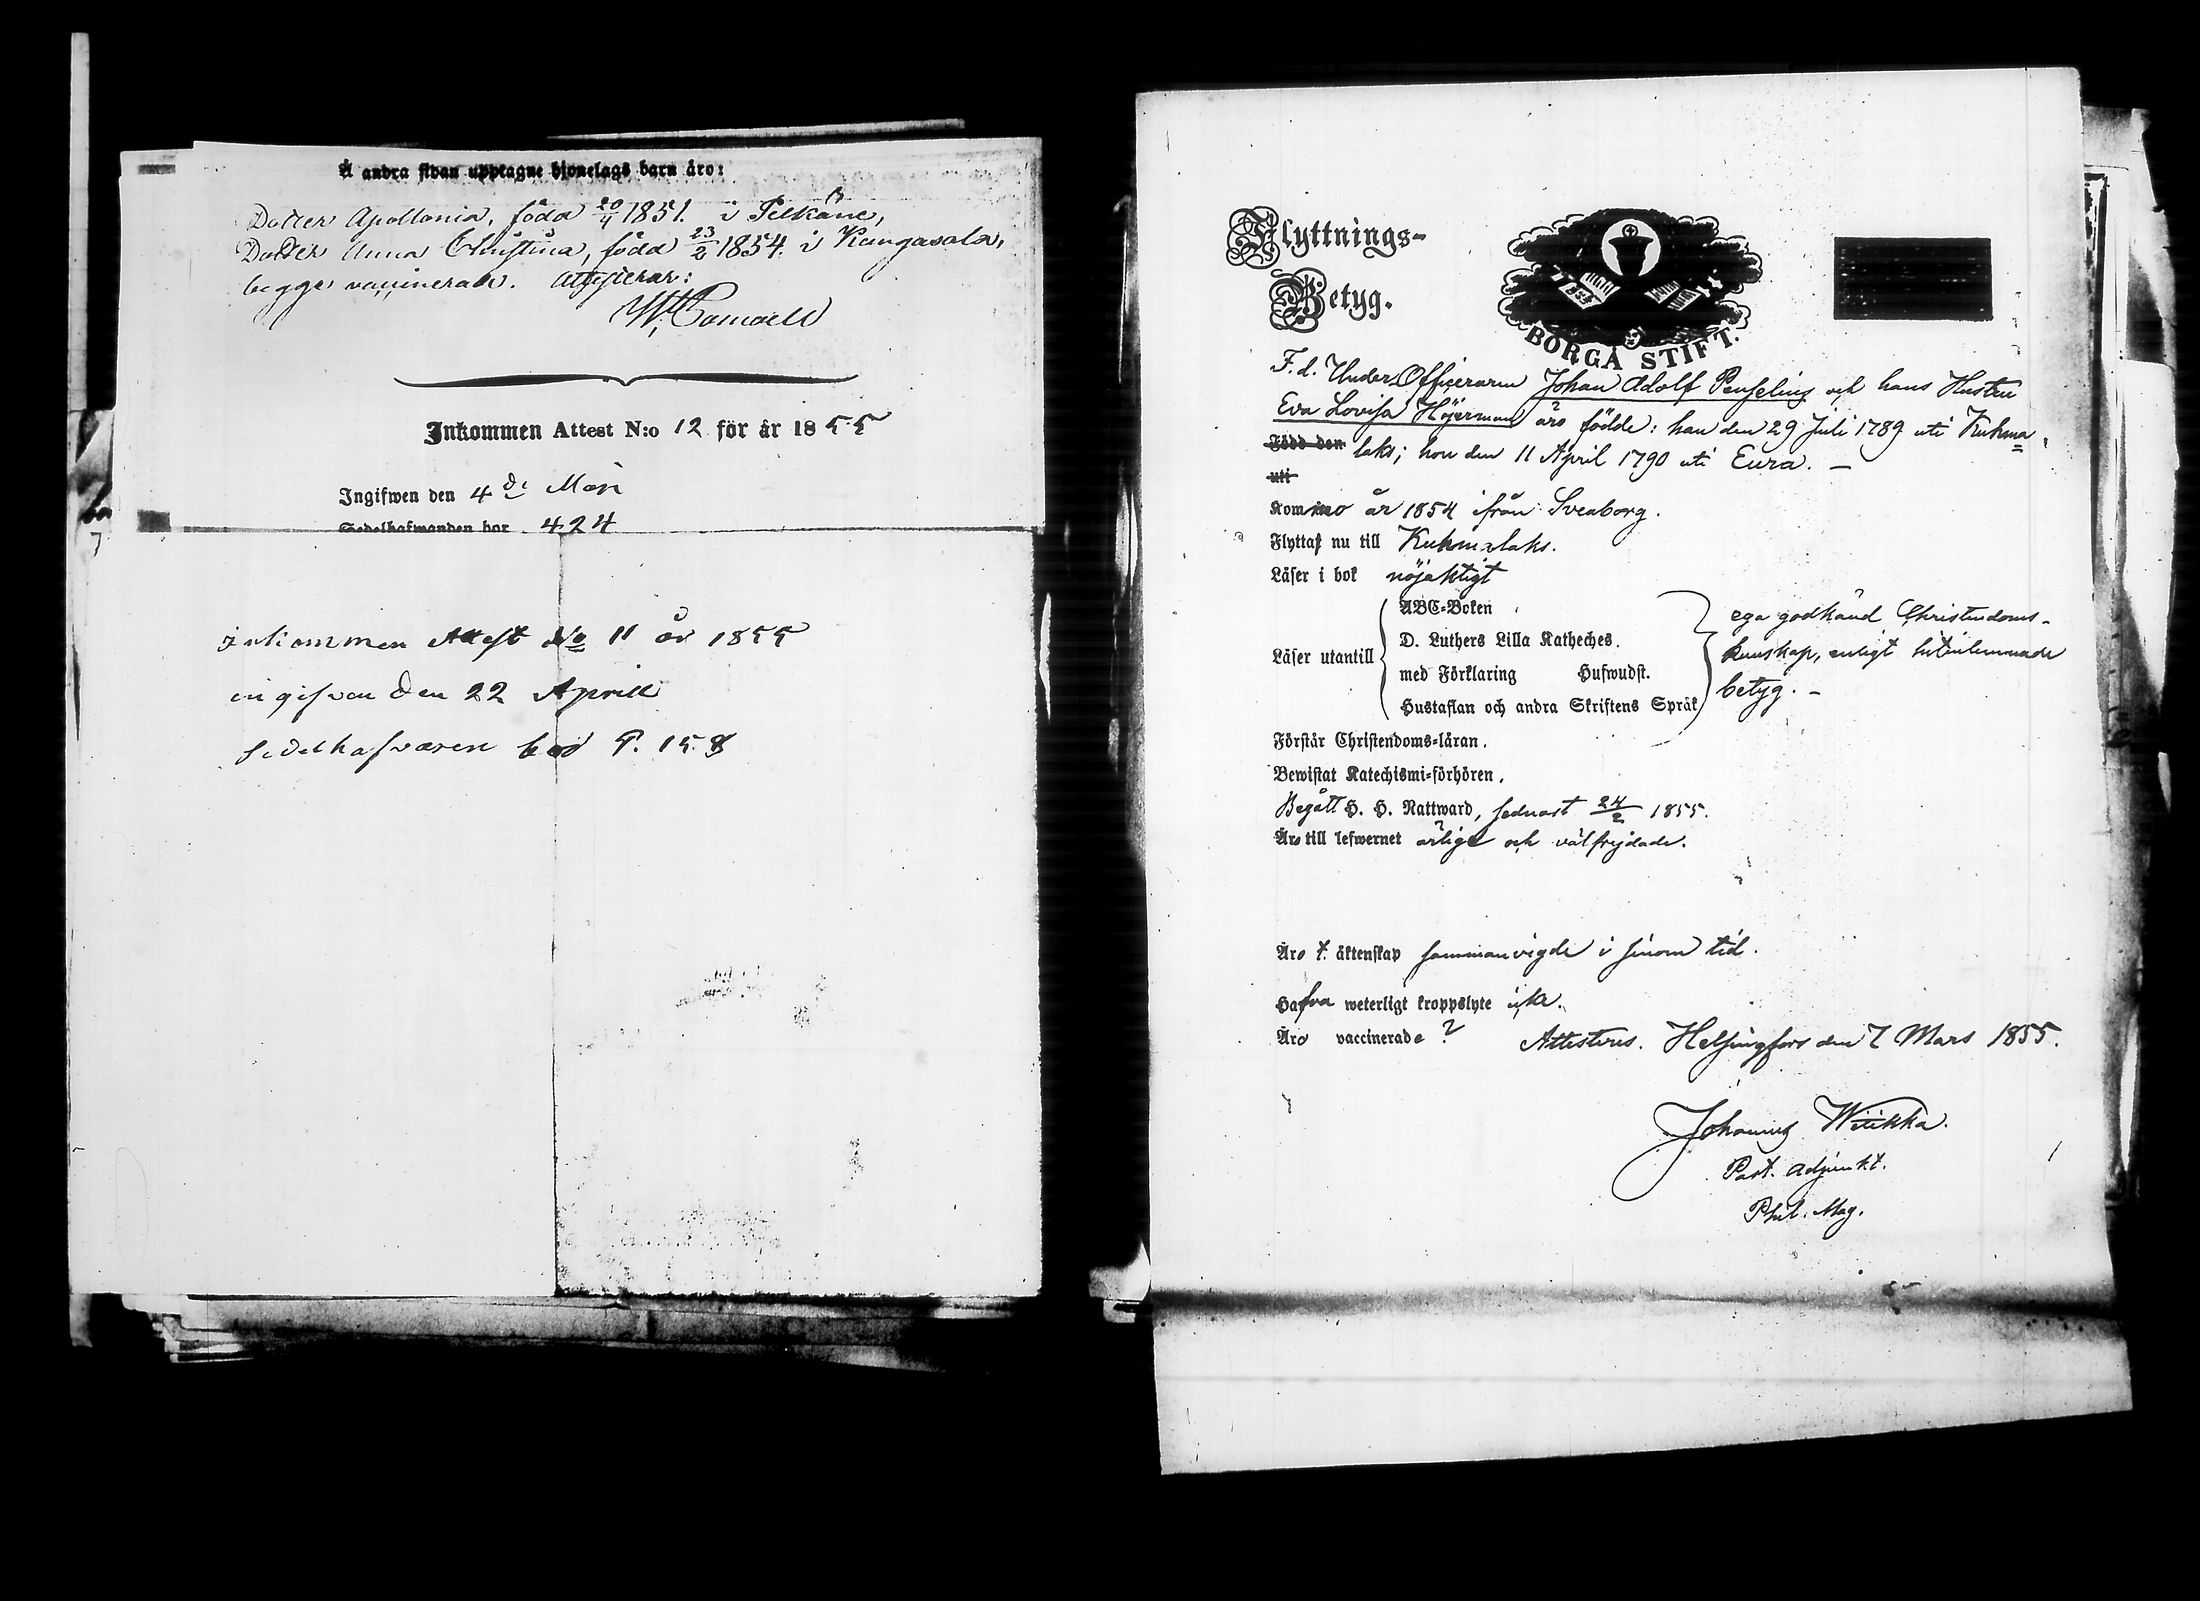 Å andra sidan upptagne hjonelags barn äro:
Dotter Apollonia, född 20/4 1851. i Pelkäne,
Dotter Anna Christina, född 23/2 1854. i Kangasala,
begge vaccinerade. Attesterar:
Inkommen Attest N:o 12 för år 1855
Ingifwen den 4de Maji
Sedelhafwanden bor 424
Inkommen Attest No 11 år 1855
ingifven den 22 Aprill
sedelhafvaren bor P. 158
Flyttnings-
Betyg.
BORGÅ STIFT.
F. d. Under Officeraren Johan Adolf Penselius och hans Hustru
Eva Lovisa Höjerman äro födde: han den 29 Juli 1789 uti Kuhma=
Född den laks; hon den 11 April 1790 uti Eura. —
uti
Kommo år 1854 ifrån Sveaborg.
Flyttas nu till Kuhmalaks.
Läser i bok nöjaktigt
Läser utantill
ABC-Boken
D. Luthers Lilla Katheches.
med Förklaring Hufwudst.
Hustaflan och andra Skriftens Språk
ega godkänd Christendoms-
kunskap, enligt hitintilemnade
betyg. —
Förstår Christendoms-läran.
Bewistat Katechismi-förhören.
Begått H. H. Nattward, sednast 24/2 1855.
Äro till lefwernet ärlige och välfrejdade.
Äro i äktenskap sammanvigde i sinom tid.
Hafva weterligt kroppslyte icke.
Äro vaccinerade? Attesteras. Helsingfors den 7 Mars 1855.
Johannes Witikka.
Past. Adjunkt.
Phil. Mag.